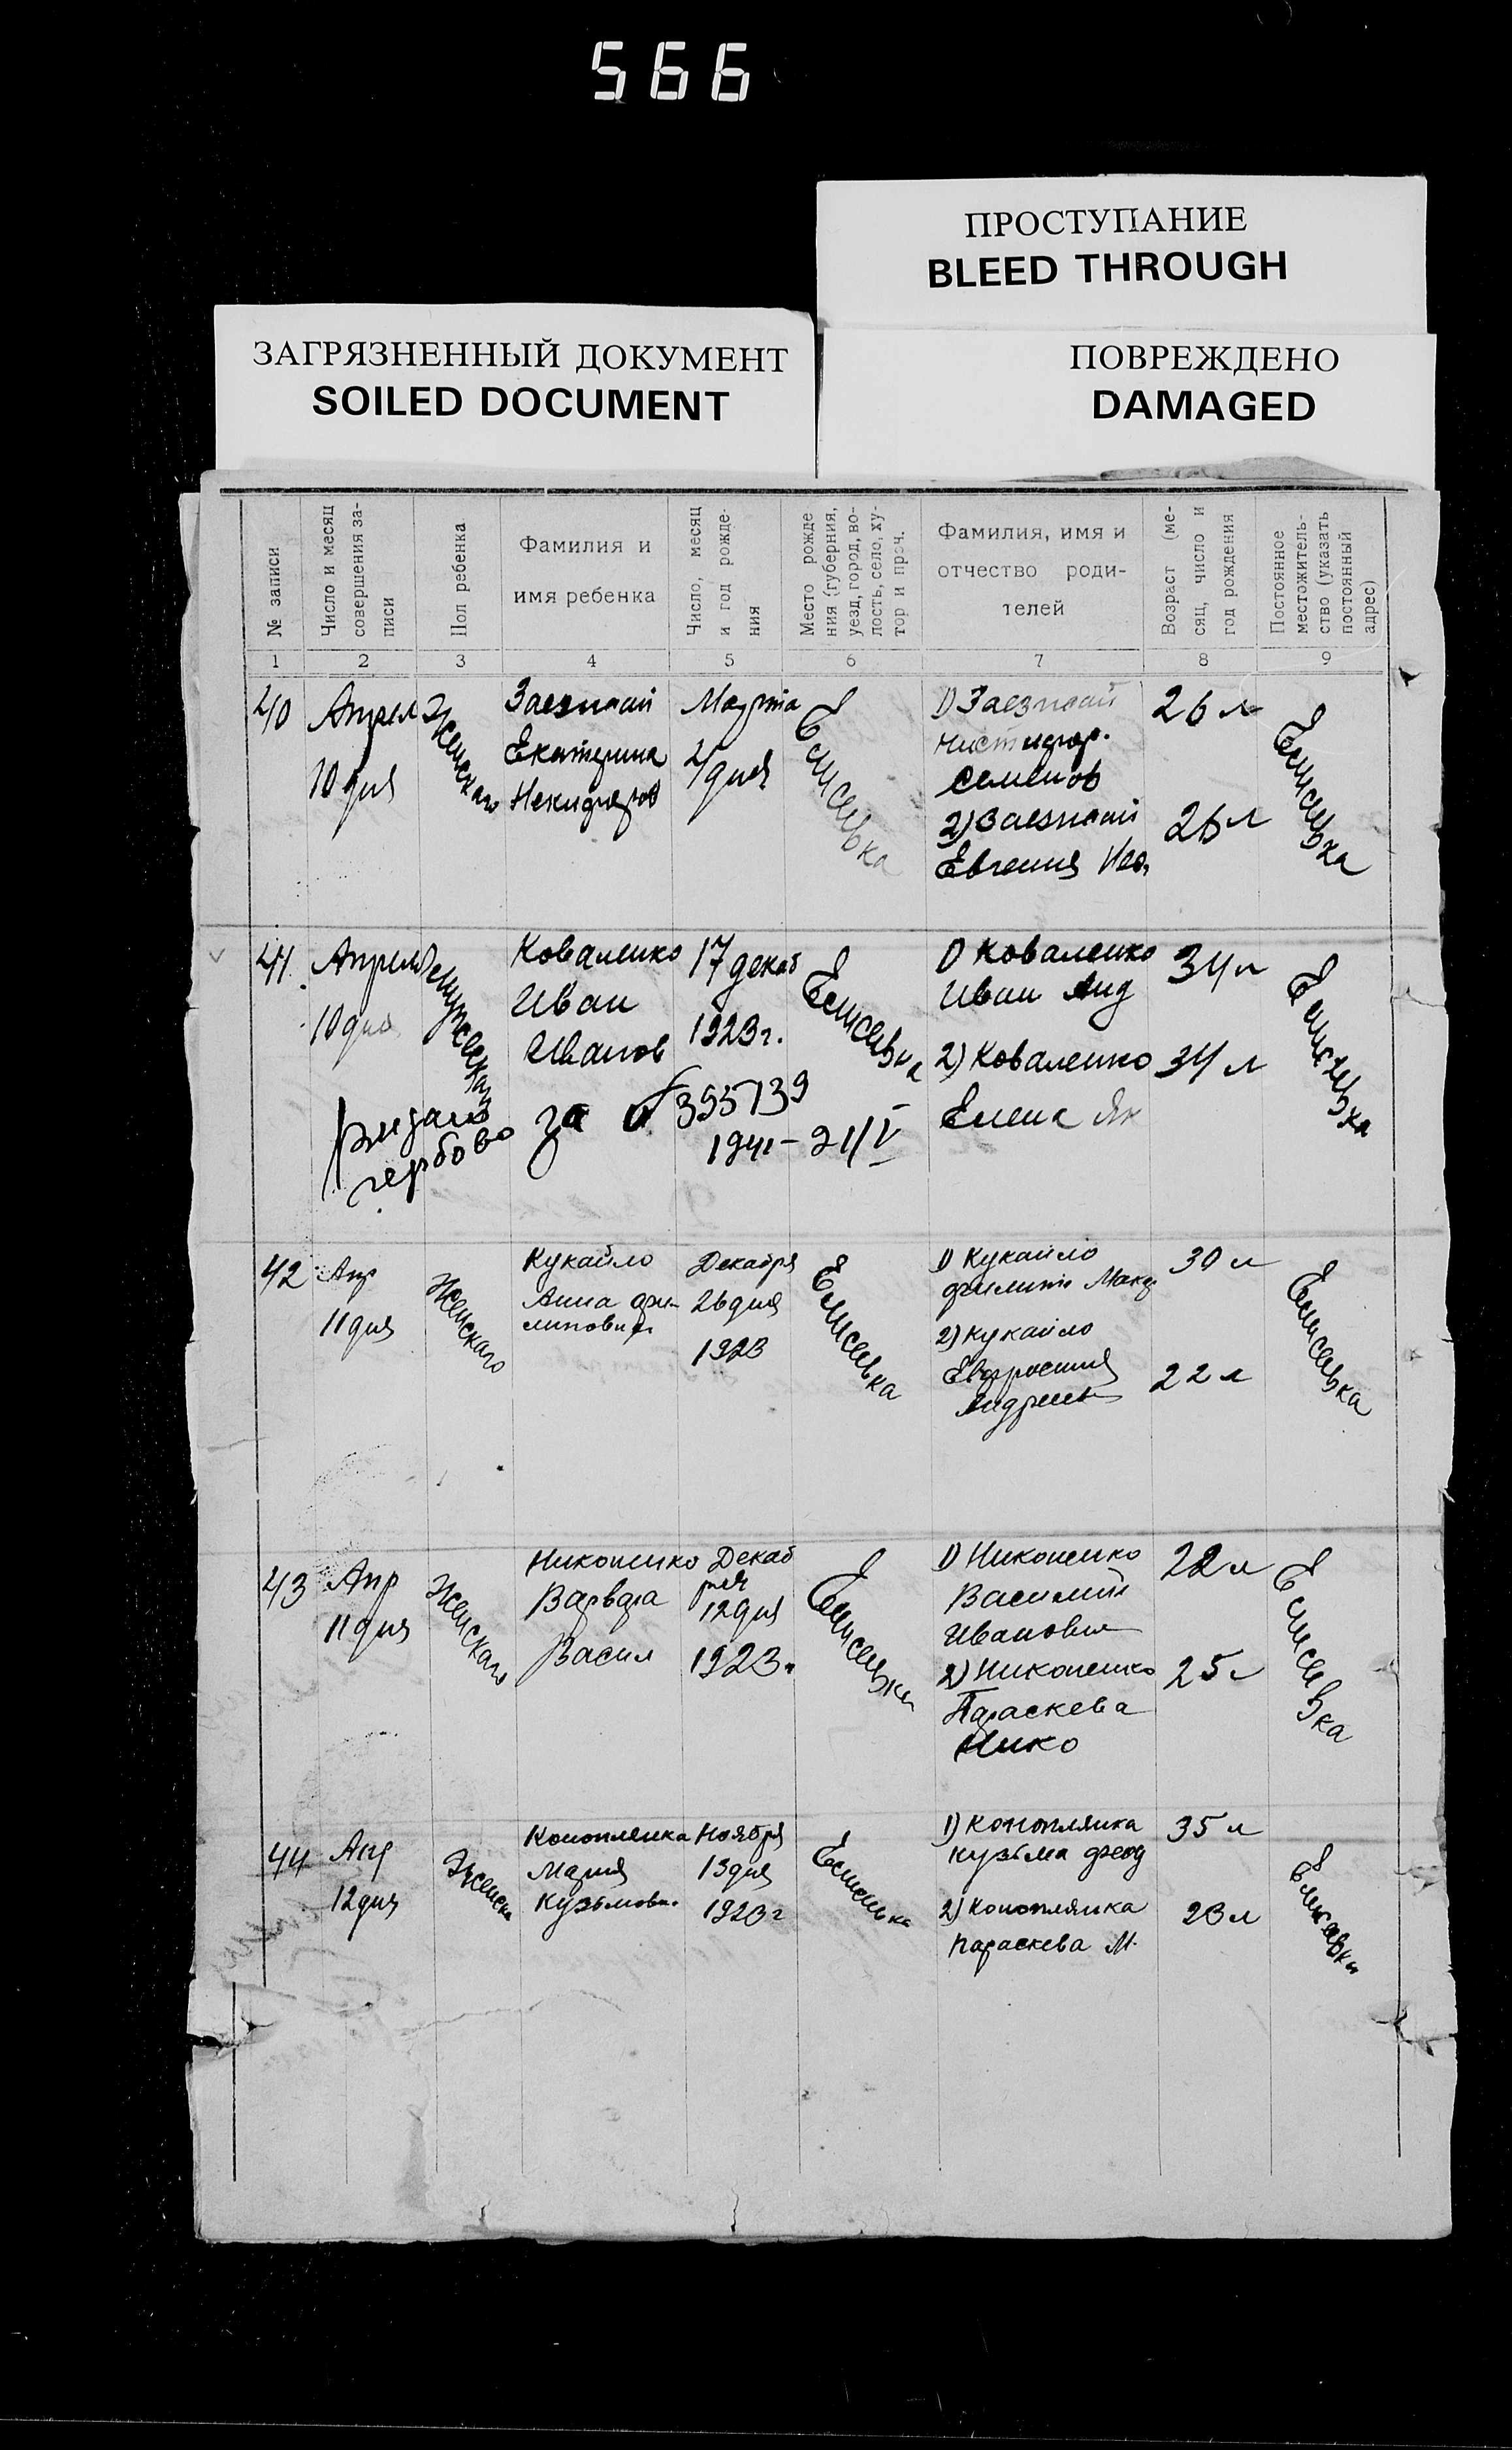 566
ПРОСТУПАНИЕ
BLEED THROUGH
ЗАГРЯЗНЕННЫЙ ДОКУМЕНТ
SOILED DOCUMENT
ПОВРЕЖДЕНО
DAMAGED
№ записи
Число и месяц
совершения за-
писи
Пол ребенка
Фамилия и
имя ребенка
Число, месяц
и год рожде-
ния
Место рожде
ния (губерния,
уезд, город, во-
лость, село, ху-
тор и проч.
Фамилия, имя и
отчество роди-
телей
Возраст (ме-
сяц, число и
год рождения
Постоянное
местожитель-
ство (указать
постоянный
адрес)
1 2 3 4 5 6 7 8 9
40
Апрел
10 дня
Женскаго
Заезжай
Екатерина
Марта
4 дня
Елисеевка
1) Заезжай
семенов
2) Заезжай
Евгения
26 л
26 л
Елисеевка
41.
Апреля
10 дня
Коваленко
Иван
Иванов
17 декаб
1923 г.
Елисеевка
1) Коваленко
Иван Анд
2) Коваленко
Елена Як
34 л
34 л
Елисеевка
за № 395739
1941 - 21/V
42
Апр
11 дня
Женскаго
Кукайло
Анна фи-
липовна
Декабря
26 дня
1923
Елисеевка
1) Кукайло
филипп Макс
2) Кукайло
Евфросиния
Андреев
30 л
22 л
Елисеевка
43
Апр
11 дня
Женскаго
Никоненко
Варвара
Васил
Декаб
ря
12 дня
1923.
Елисеевка
1) Никоненко
Василий
Иванович
2) Никоненко
Параскева
Нико
22 л
25 л
Елисеевка
44
Апр
12 дня
Женска
Коноплянка
Мария
Кузьмовн.
Ноября
13 дня
1923 г
Елисеевка
1) Коноплянка
Кузьма феод
2) Коноплянка
Параскева М.
35 л
23 л
Елисеевка